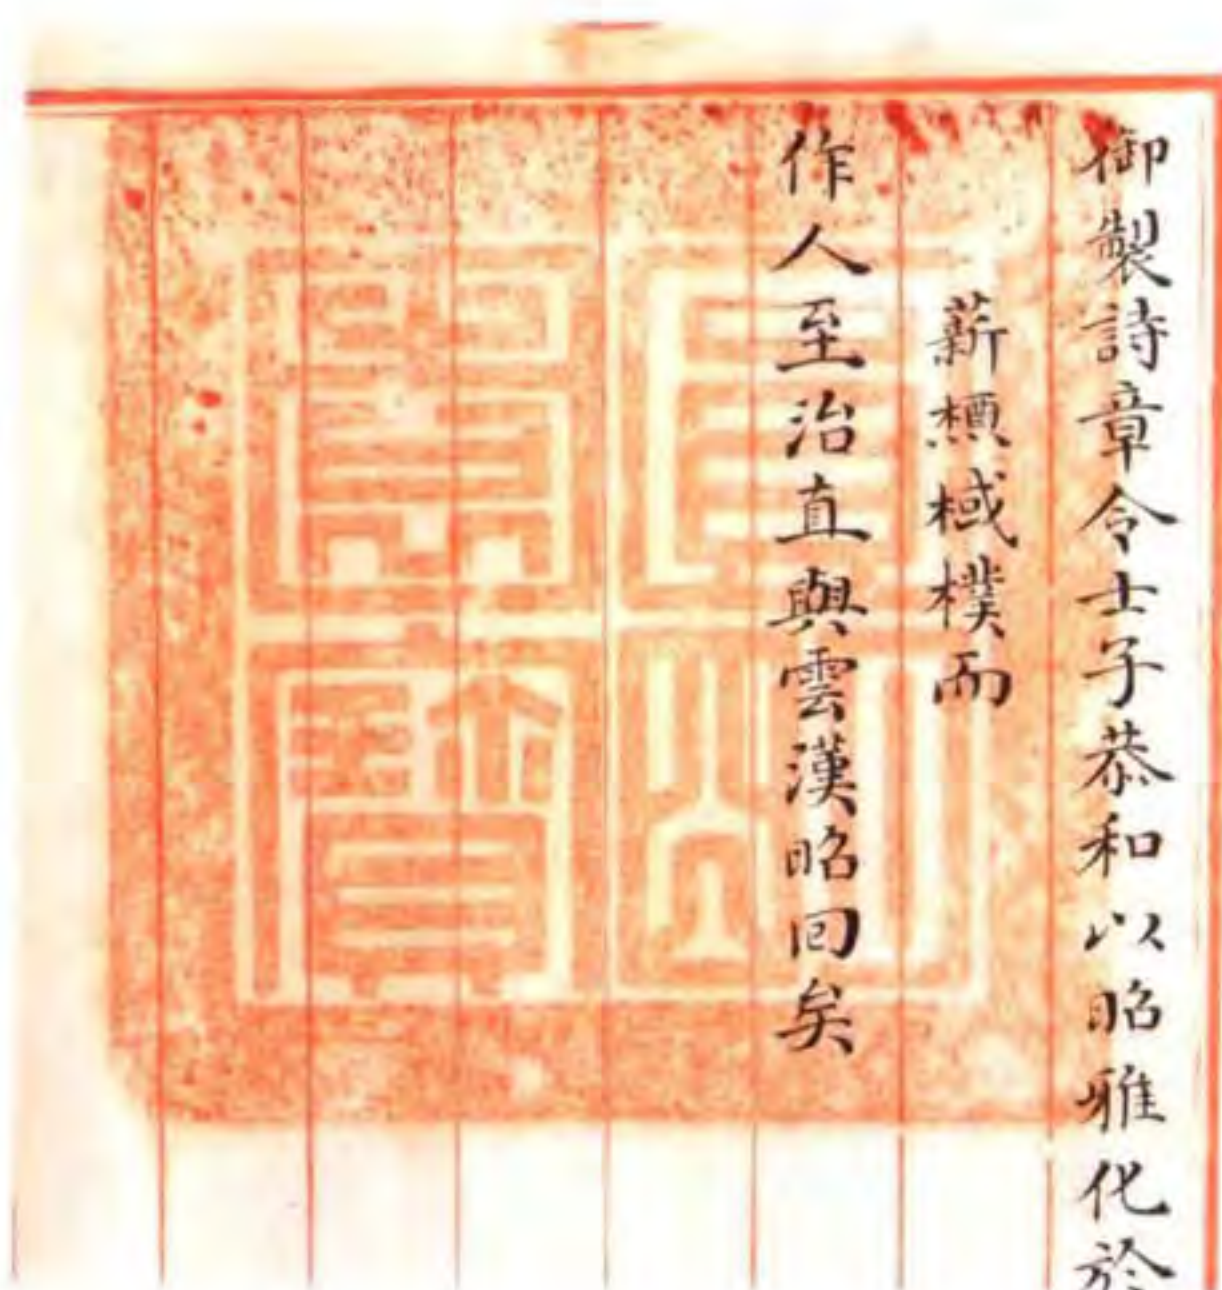 御製詩章令士子恭和以昭雅化於
薪槱棫樸而
作人至治直與雲漢昭回矣